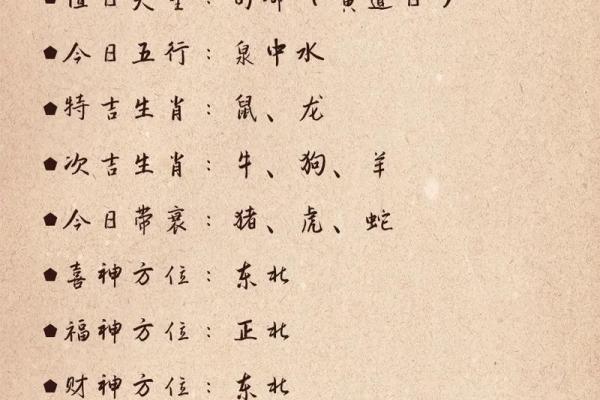 ⬟值日天星：司命（黄道日）
⬟今日五行：泉中水
⬟特吉生肖：鼠、龙
⬟次吉生肖：牛、狗、羊
⬟今日带衰：猪、虎、蛇
⬟喜神方位：东北
⬟福神方位：正北
⬟财神方位：东北